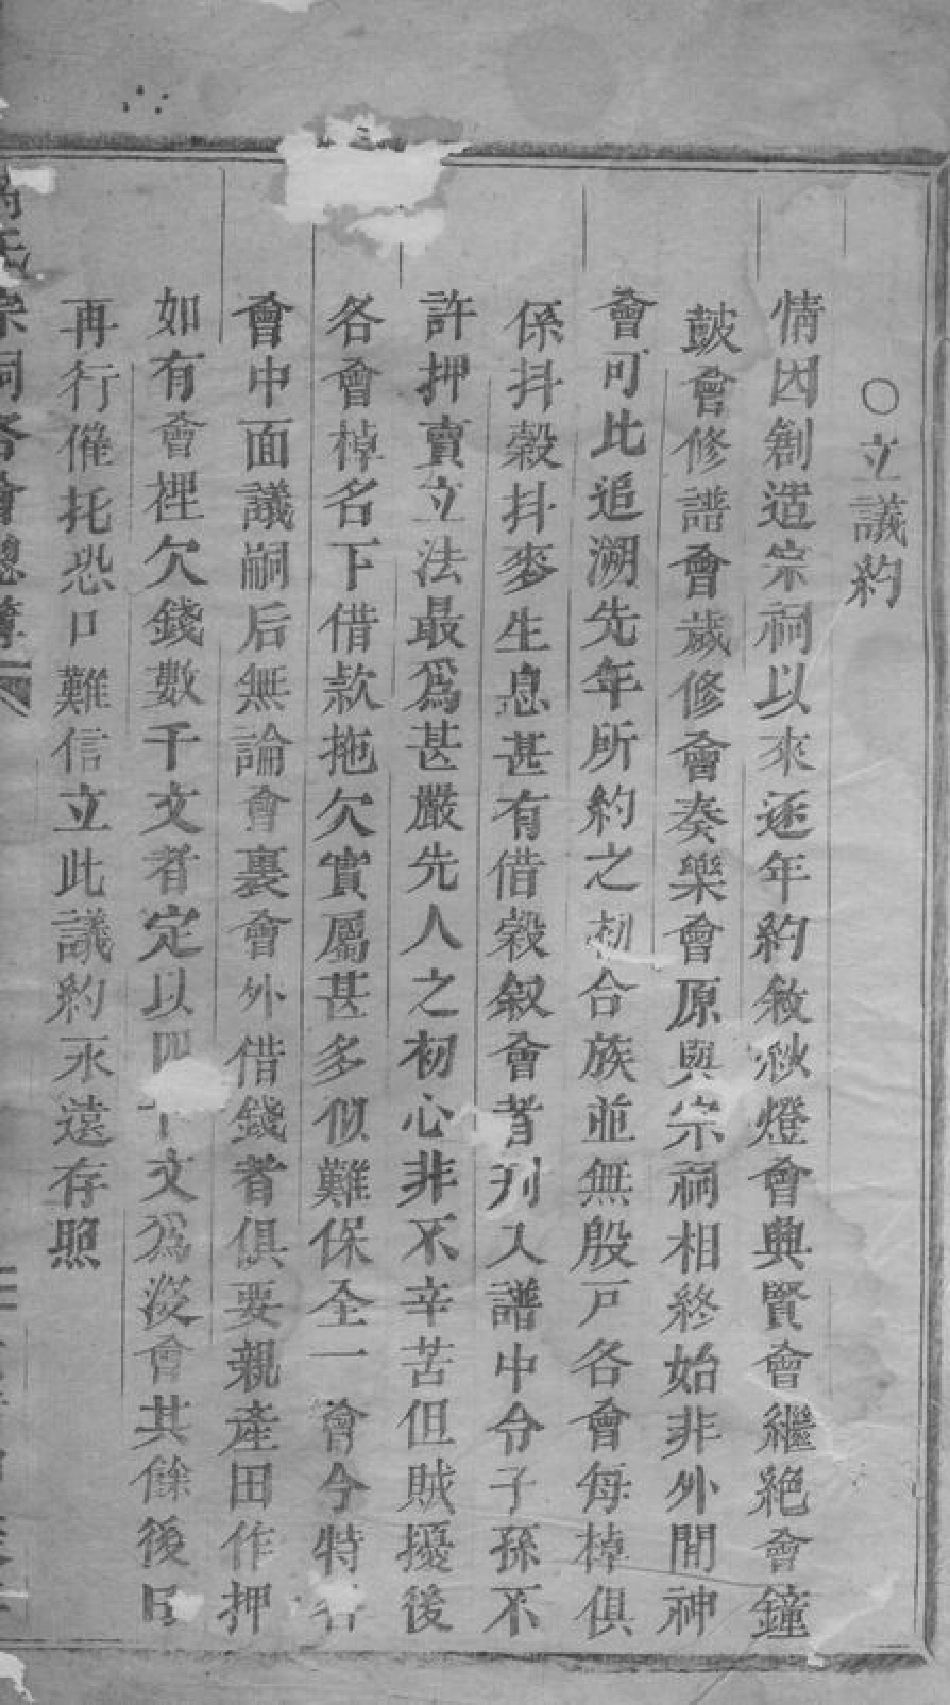 ○立議約
情因創造宗祠以來逐年約敘秋燈會興賢會繼絕會鐘
皷會修譜會歲修會奏樂會原與宗祠相終始非外間神
會可比追溯先年所約之初合族並無殷戶各會每棹俱
係抖穀抖麥生息甚有借穀叙會者列入譜中令子孫不
許押賣立法最爲甚嚴先人之初心非不辛苦但賊擾後
各會棹名下借款拖欠實屬甚多似難保全一會今特
會中面議嗣后無論會裏會外借錢者俱要親產田作押
如有會裡欠錢數千文者定以四千文爲沒會其餘後日
再行催托恐口難信立此議約永遠存照
氏宗祠各會總簿